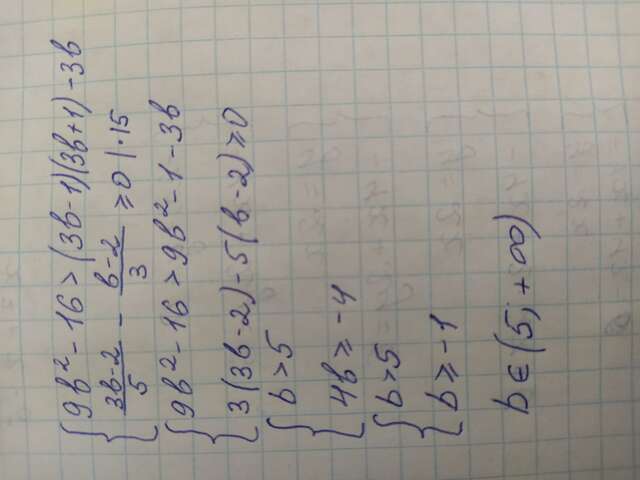 { 9b² - 16 > (3b - 1)(3b + 1) - 3b
{ (3b-2)/5 - (b-2)/3 ≥ 0 | · 15
{ 9b² - 16 > 9b² - 1 - 3b
{ 3(3b - 2) - 5(b - 2) ≥ 0
{ b > 5
{ 4b ≥ -4
{ b > 5
{ b ≥ -1
b ∈ (5; +∞)